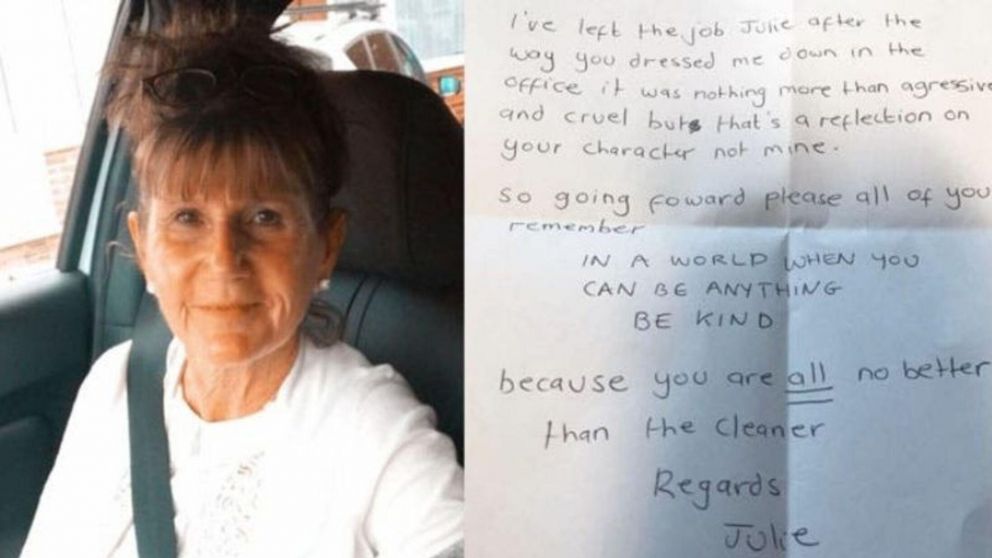 I've left the job Julie after the
way you dressed me down in the
office it was nothing more than agressive
and cruel but that's a reflection on
your character not mine.
So going foward please all of you
remember
IN A WORLD WHEN YOU
CAN BE ANYTHING
BE KIND
because you are all no better
than the cleaner
Regards
Julie